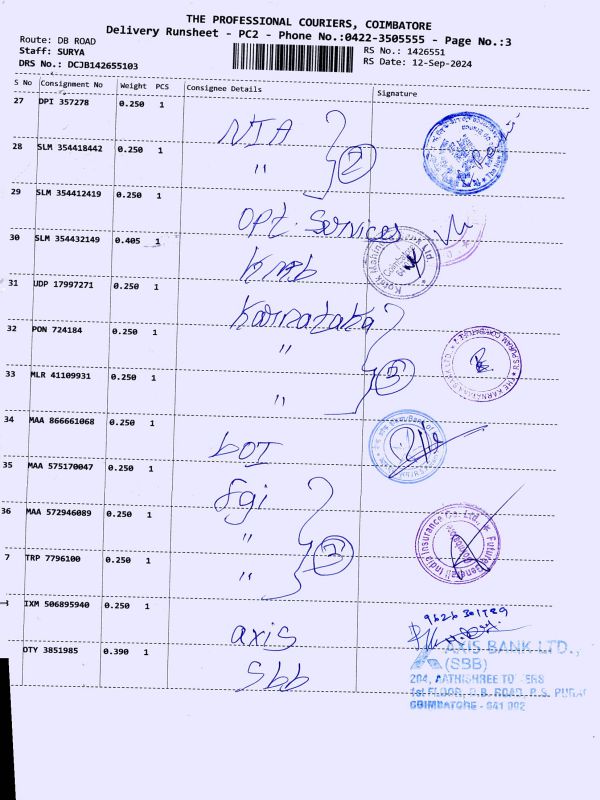 THE PROFESSIONAL COURIERS, COIMBATORE
Delivery Runsheet - PC2 - Phone No.:0422-3505555 - Page No.:3
Route: DB ROAD
RS No.: 1426551
Staff: SURYA
RS Date: 12-Sep-2024
DRS No.: DCJB142655103
S No Consignment No Weight PCS Consignee Details Signature
27 DPI 357278 0.250 1 NIA
28 SLM 354418442 0.250 1 "
2
29 SLM 354412419 0.250 1 opt. Services
30 SLM 354432149 0.405 1 kmb
31 UDP 17997271 0.250 1 Karnataka
32 PON 724184 0.250 1 "
33 MLR 41109931 0.250 1 "
3
34 MAA 866661068 0.250 1 bOI
35 MAA 575170047 0.250 1 fgi
36 MAA 572946089 0.250 1 "
7 TRP 7796100 0.250 1 "
IXM 506895940 0.250 1 axis
OTY 3851985 0.390 1 Sbb
Kotak Mahindra Bank Ltd.
Future Generali India Insurance Co. Ltd.
AXIS BANK LTD.,
(SBB)
204, AATHISHREE TO ERS
1st FLOOR, D.B. ROAD, R.S. PURA
COIMBATORE - 641 002